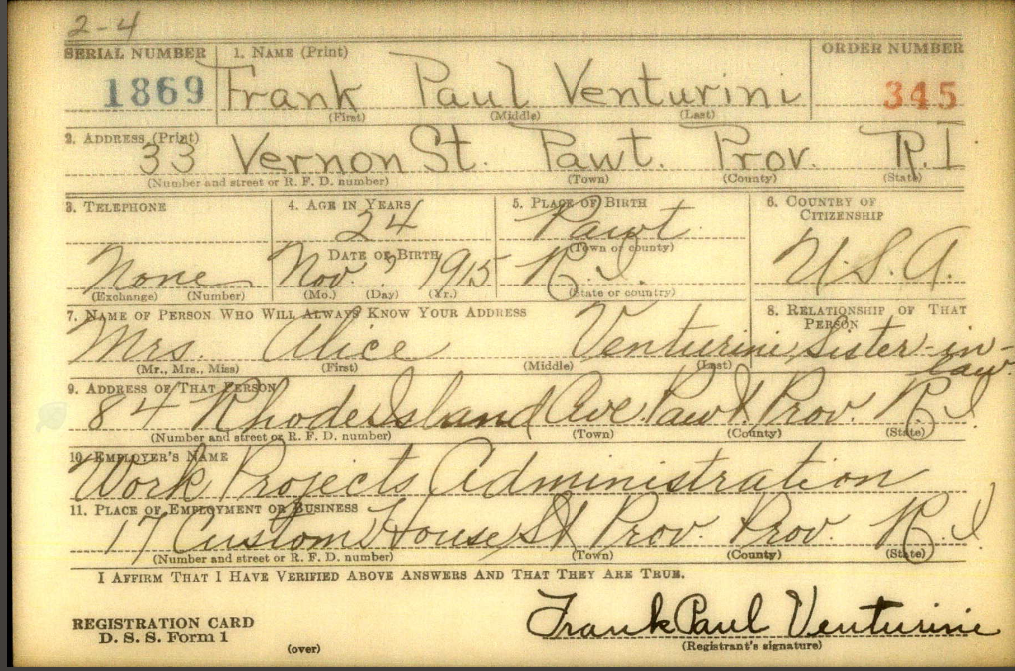 2-4
SERIAL NUMBER 1. NAME (Print) ORDER NUMBER
1869 Frank Paul Venturini 345
(First) (Middle) (Last)
2. ADDRESS (Print)
33 Vernon St. Pawt. Prov. R.I
(Number and street or R. F. D. number) (Town) (County) (State)
3. TELEPHONE 4. AGE IN YEARS 5. PLACE OF BIRTH 6. COUNTRY OF CITIZENSHIP
24 Pawt.
DATE OF BIRTH (Town or county)
None Nov. 1915 R.I. U.S.A.
(Exchange) (Number) (Mo.) (Day) (Yr.) (State or country)
7. NAME OF PERSON WHO WILL ALWAYS KNOW YOUR ADDRESS 8. RELATIONSHIP OF THAT PERSON
Mrs. Alice Venturini Sister-in-law
(Mr., Mrs., Miss) (First) (Middle) (Last)
9. ADDRESS OF THAT PERSON
84 Rhode Island Ave Pawt Prov. R I
(Number and street or R. F. D. number) (Town) (County) (State)
10. EMPLOYER'S NAME
Work Projects Administration
11. PLACE OF EMPLOYMENT OR BUSINESS
17 Custom House St Prov. Prov. R I
(Number and street or R. F. D. number) (Town) (County) (State)
I AFFIRM THAT I HAVE VERIFIED ABOVE ANSWERS AND THAT THEY ARE TRUE.
REGISTRATION CARD
D. S. S. Form 1
(over)
Frank Paul Venturini
(Registrant's signature)